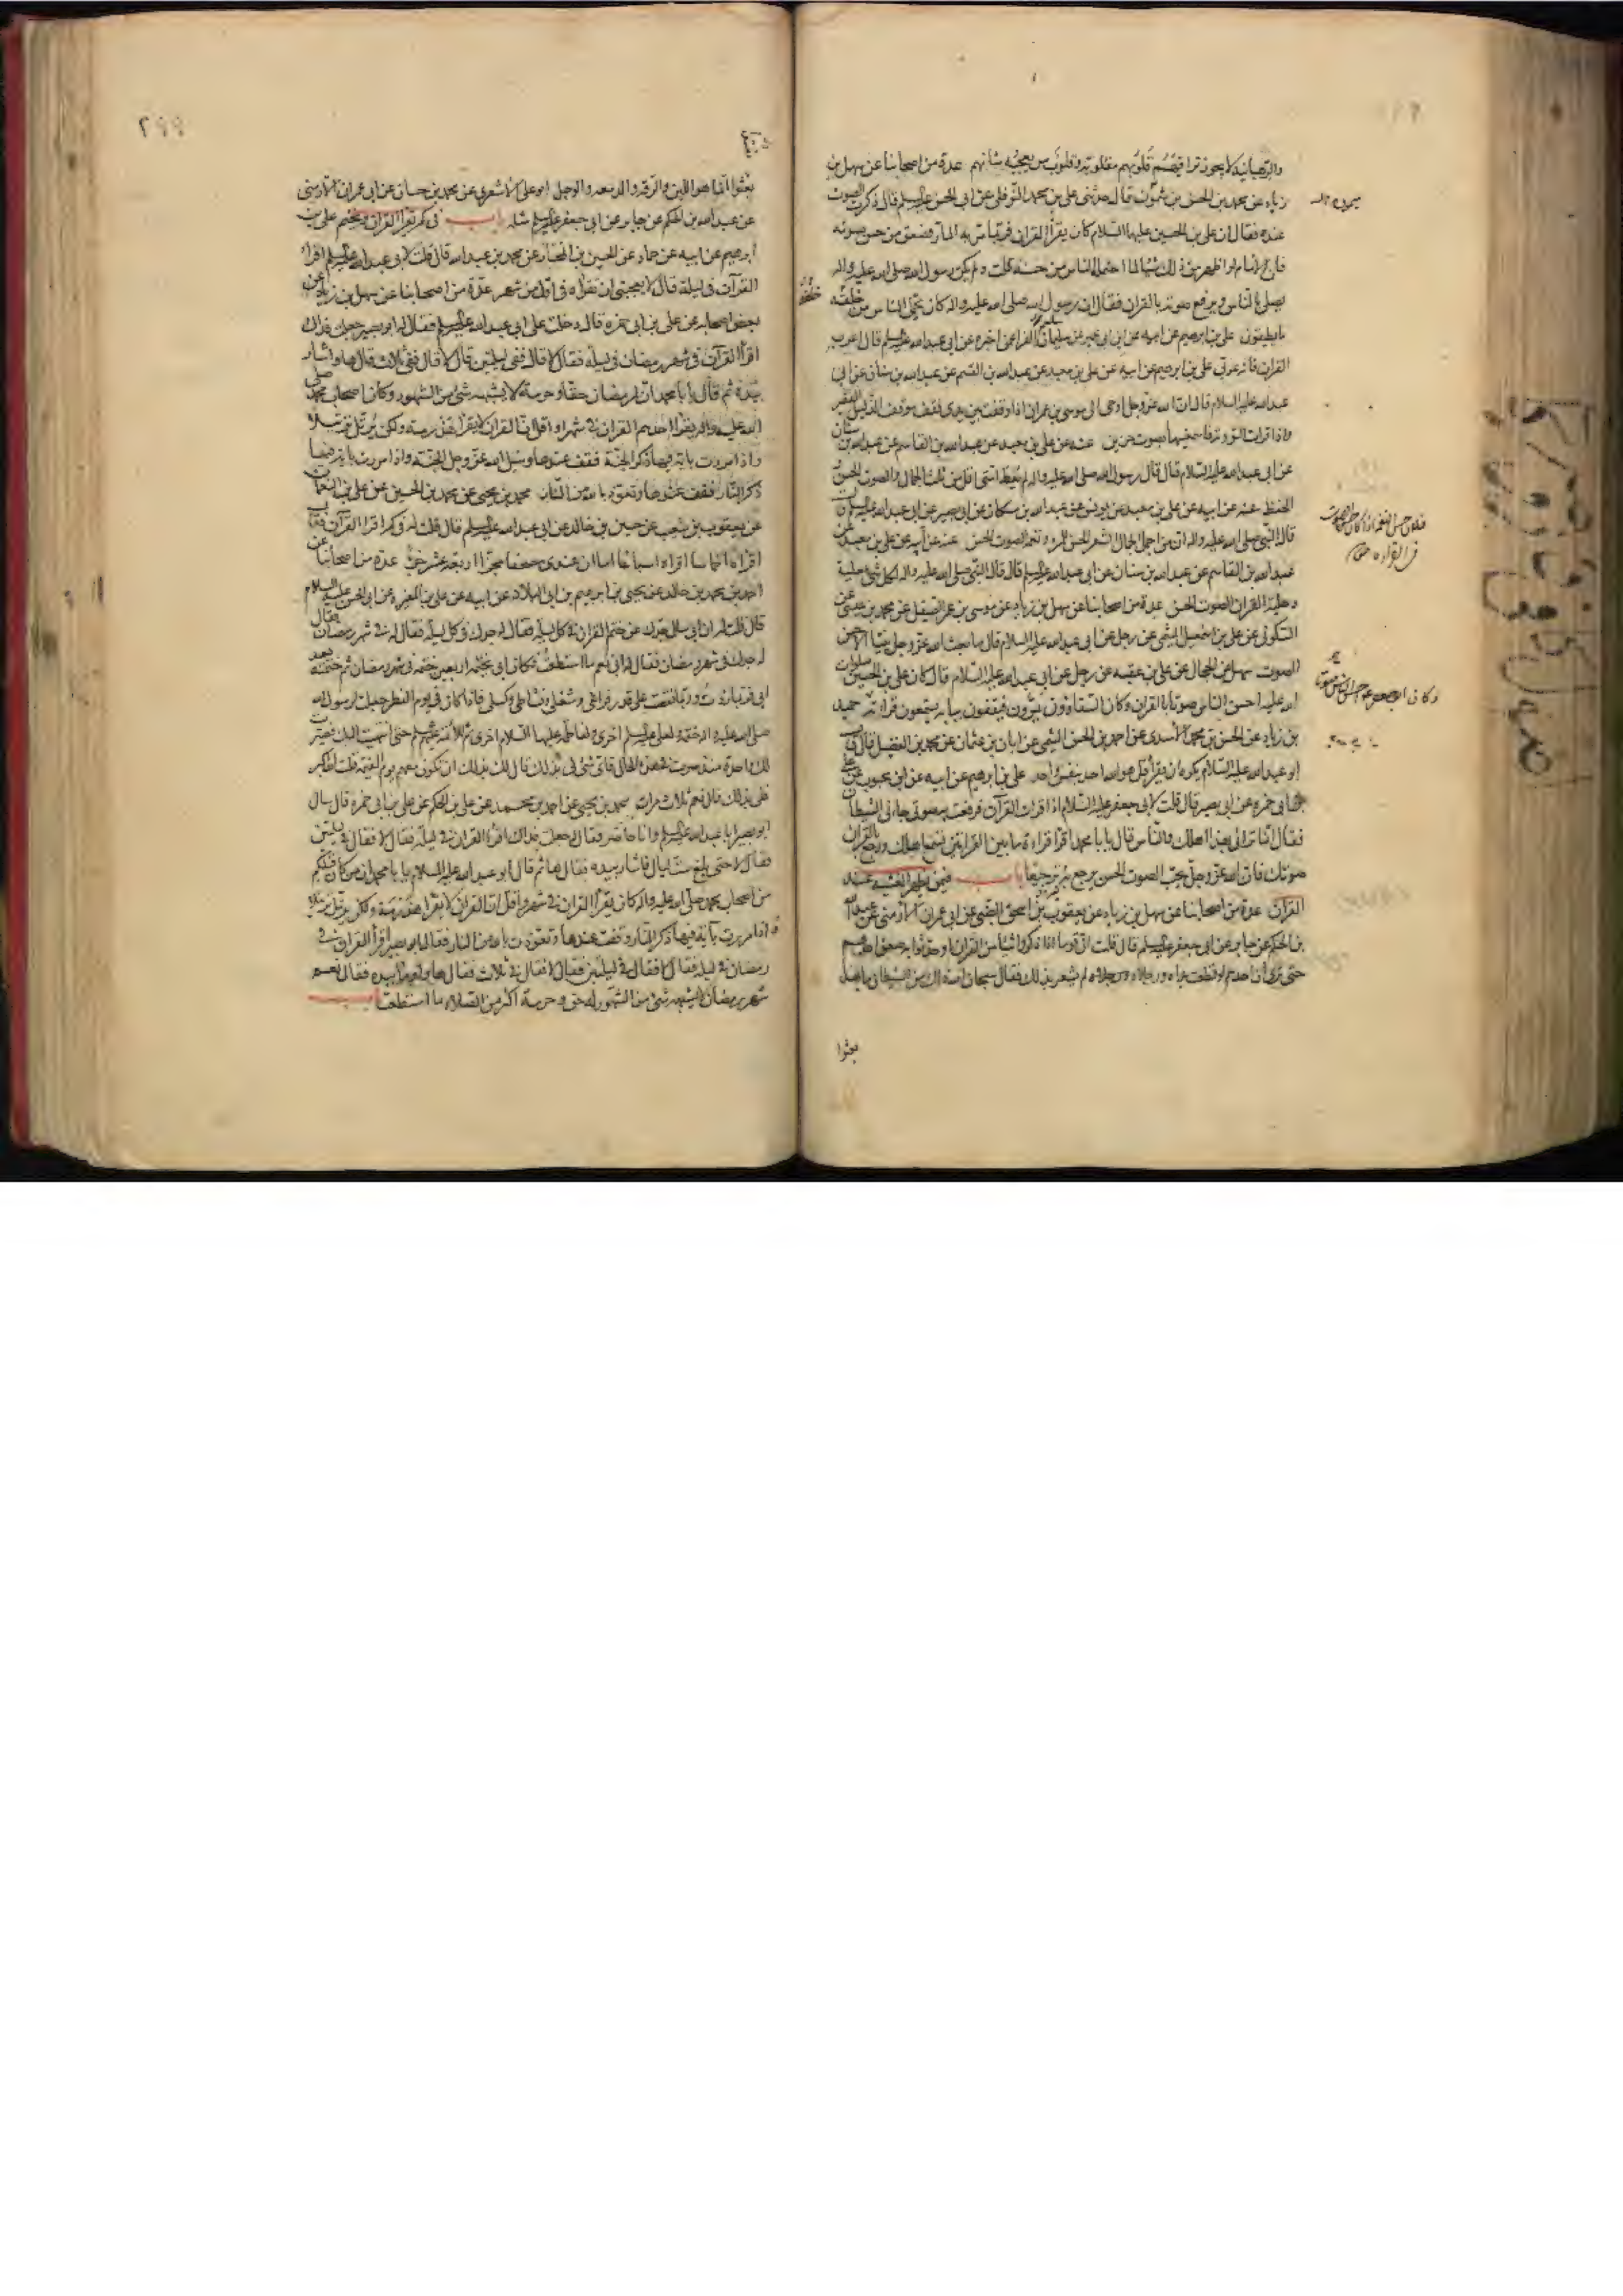 والرهبانية لا يجوز تراقيهم قلوبهم مقلوبة وقلوب من يعجبه شأنهم عدة من اصحابنا عن سهل بن
زياد عن محمد بن الحسن بن شمون قال حدثني علي بن محمد النوفلي عن ابي الحسن عليه السلم قال ذكرت الصوت
عنده فقال ان علي بن الحسين عليهما السلام كان يقرأ القران فربما مر به المار فصعق من حسن صوته
وان الامام لو اظهر من ذلك شيئا لما احتمله الناس من حسنه قلت ولم يكن رسول الله صلى الله عليه واله
يصلي بالناس ويرفع صوته بالقران فقال ان رسول الله صلى الله عليه واله كان يحمل الناس من خلفه
ما يطيقون علي بن ابرهيم عن ابيه عن ابن ابي عمير عن سليم الفراء عن اخبره عن ابي عبد الله عليه السلم قال اعرب
القران فانه عربي علي بن ابرهيم عن ابيه عن علي بن معبد عن عبد الله بن القسم عن عبد الله بن سنان عن ابي
عبد الله عليه السلام قال ان الله عز وجل اوحى الى موسى بن عمران اذا وقفت بين يدي فقف موقف الذليل الفقير
واذا قرات التورية فاسمعنيها بصوت حزين عنه عن علي بن معبد عن عبد الله بن القاسم عن عبد الله بن سنان
عن ابي عبد الله عليه السلام قال قال رسول الله صلى الله عليه واله لم يعط امتي اقل من ثلث الجمال والصوت الحسن
والحفظ عنه عن ابيه عن علي بن معبد عن يونس عن عبد الله بن مسكان عن ابي بصير عن ابي عبد الله عليه السلم
قال النبي صلى الله عليه واله ان من اجمل الجمال الشعر الحسن ونغمة الصوت الحسن عنه عن ابيه عن علي بن معبد عن
عبد الله بن القاسم عن عبد الله بن سنان عن ابي عبد الله عليه السلم قال قال النبي صلى الله عليه واله لكل شئ حلية
وحلية القران الصوت الحسن عدة من اصحابنا عن سهل بن زياد عن موسى بن عمر الصيقل عن محمد بن عيسى عن
السكوني عن علي بن اسمعيل الميثمي عن رجل عن ابي عبد الله عليه السلام قال ما بعث الله عز وجل نبيا الا حسن
الصوت سهل عن الحجال عن علي بن عقبه عن رجل عن ابي عبد الله عليه السلام قال كان علي بن الحسين صلوات
الله عليه احسن الناس صوتا بالقران وكان السقاؤون يمرون فيقفون ببابه يستمعون قراءته حميد
بن زياد عن الحسن بن محمد الأسدي عن احمد بن الحسن الميثمي عن ابان بن عثمان عن محمد بن الفضيل قال قال
ابو عبد الله عليه السلام يكره ان يقرأ قل هو الله احد بنفس واحد علي بن ابرهيم عن ابيه عن ابن محبوب عن علي
بن ابي حمزه عن ابي بصير قال قلت لابي جعفر عليه السلام اذا قرات القرآن فرفعت به صوتي جاءني الشيطان
فقال انما ترائي بهذا اهلك والناس قال يا با محمد اقرا قراءة ما بين القراءتين تسمع اهلك ورجع بالقران
صوتك فان الله عز وجل يحب الصوت الحسن يرجع به ترجيعا باب فيمن يظهر الغشية عند
القرآن عدة من اصحابنا عن سهل بن زياد عن يعقوب بن اسحق الضبي عن ابي عمران الارمني عن عبد الله
بن الحكم عن جابر عن ابي جعفر عليه السلم قال قلت ان قوما اذا ذكروا شيئا من القران او حدثوا به صعق احدهم
حتى ترى ان احدهم لو قطعت يداه ورجلاه لم يشعر بذلك فقال سبحان الله ذاك من الشيطان ما بهذا
بعثوا
خلفه
وكان ابو جعفر ع احسن الناس صوتا
بعثوا انما هو اللين والرقه والدمعه والوجل ابو علي الاشعري عن محمد بن حسان عن ابي عمران الارمني
عن عبد الله بن الحكم عن جابر عن ابي جعفر عليه السلم مثله باب في كم يقرأ القران ويختم علي بن
ابرهيم عن ابيه عن حماد عن الحسين بن المختار عن محمد بن عبد الله قال قلت لابي عبد الله عليه السلم اقرأ
القرآن في ليلة قال لا يعجبني ان تقرأه في اقل من شهر عدة من اصحابنا عن سهل بن زياد عن
بعض اصحابه عن علي بن ابي حمزه قال دخلت على ابي عبد الله عليه السلم فقال له ابو بصير جعلت فداك
اقرأ القرآن في شهر رمضان في ليلة فقال لا قال ففي ليلتين قال لا قال ففي ثلاث قال ها واشار
بيده ثم قال يا با محمد ان لرمضان حقا وحرمة لا يشبهه شئ من الشهور وكان اصحاب محمد صلى
الله عليه واله يقرأ احدهم القران في شهر او اقل ان القران لا يقرأ هذرمة ولكن يرتل ترتيلا
واذا مررت باية فيها ذكر الجنة فقف عندها وسل الله عز وجل الجنة واذا مررت باية فيها
ذكر النار فقف عندها وتعوذ بالله من النار محمد بن يحيى عن محمد بن الحسين عن علي بن النعمان
عن يعقوب بن شعيب عن حسين بن خالد عن ابي عبد الله عليه السلم قال قلت له في كم اقرا القرآن فقال
اقراه اخماسا اقراه اسباعا اما ان عندي مصحفا مجزا اربعة عشر جزءا عدة من اصحابنا عن
احمد بن محمد بن خالد عن يحيى بن ابرهيم بن ابي البلاد عن ابيه عن علي بن المغيره عن ابي الحسن عليه السلام
قال قلت له ان ابي سال جدك عن ختم القران في كل ليلة فقال له جدك في كل ليلة فقال له في شهر رمضان فقال
له جدك في شهر رمضان فقال له ابي نعم ما استطعت فكان ابي يختمه اربعين ختمة في شهر رمضان ثم ختمته بعد
ابي فربما زدت وربما نقصت على قدر فراغي وشغلي ونشاطي وكسلي فاذا كان في يوم الفطر جعلت لرسول الله
صلى الله عليه واله ختمة ولعلي عليه السلم اخرى ولفاطمة عليها السلام اخرى ثم للائمة عليهم السلم حتى انتهيت اليك فصيرت
لك واحدة منذ صرت في هذه الحال فاي شئ لي بذلك قال لك بذلك ان تكون معهم يوم القيمة قلت الله اكبر
فلي بذلك قال نعم ثلاث مرات محمد بن يحيى عن احمد بن محمد عن علي بن الحكم عن علي بن ابي حمزه قال سال
ابو بصير ابا عبد الله عليه السلم وانا حاضر فقال له جعلت فداك اقرأ القران في ليلة فقال لا فقال في ليلتين
فقال لا حتى بلغ ست ليال فاشار بيده فقال ها ثم قال ابو عبد الله عليه السلام يا با محمد ان من كان قبلكم
من اصحاب محمد صلى الله عليه واله كان يقرأ القران في شهر واقل ان القران لا يقرا هذرمة ولكن يرتل ترتيلا
اذا مررت بآية فيها ذكر النار وقفت عندها وتعوذت بالله من النار فقال ابو بصير اقرأ القران في
رمضان في ليلة فقال لا فقال في ليلتين فقال لا فقال في ثلاث فقال ها واومأ بيده فقال نعم
شهر رمضان لا يشبهه شئ من الشهور له حق وحرمة اكثر من الصلاة ما استطعت باب